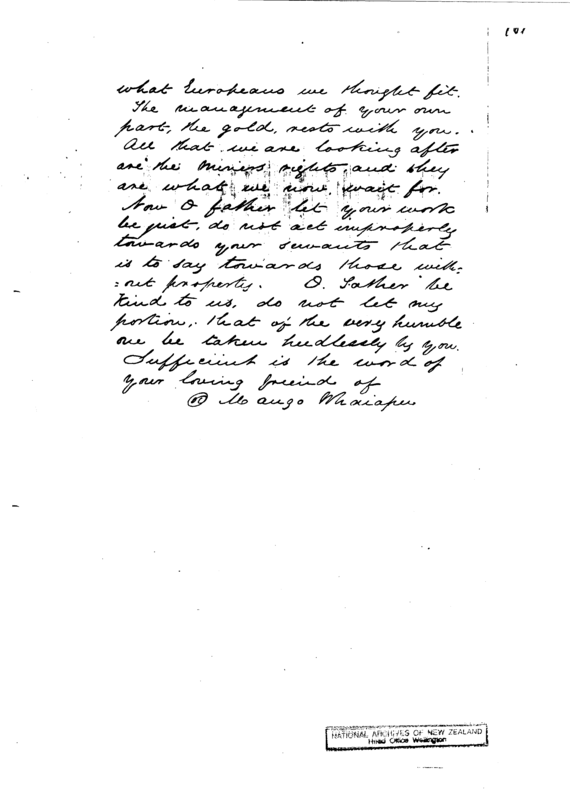 101
what Europeans we thought fit.
The management of your own
part, the gold, rests with you.
All that we are looking after
are the miners rights, and they
are what we now wait for.
Now O father let your work
be just, do not act improperly
towards your servants that
is to say towards those with:
:out property. O. Father be
kind to us, do not let my
portion, that of the very humble
one be taken heedlessly by you.
Sufficient is the word of
your loving friend of
Mango Whaiapu
NATIONAL ARCHIVES OF NEW ZEALAND
Head Office Wellington